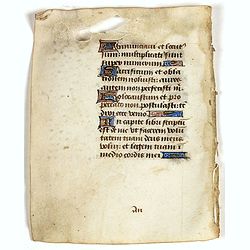 Annunciavi et locutus
sum: multiplicati sunt
super numerum
Sacrificium et obla
tionem noluisti: aures
autem perfecisti m
Holocaustum et pro
peccato non postulasti: tc
dixi ecce venio
In capite libri scriptum
est de me ut facerem volū
tatem tuam deus meus
volui: et legem tuam i
medio cordis mei